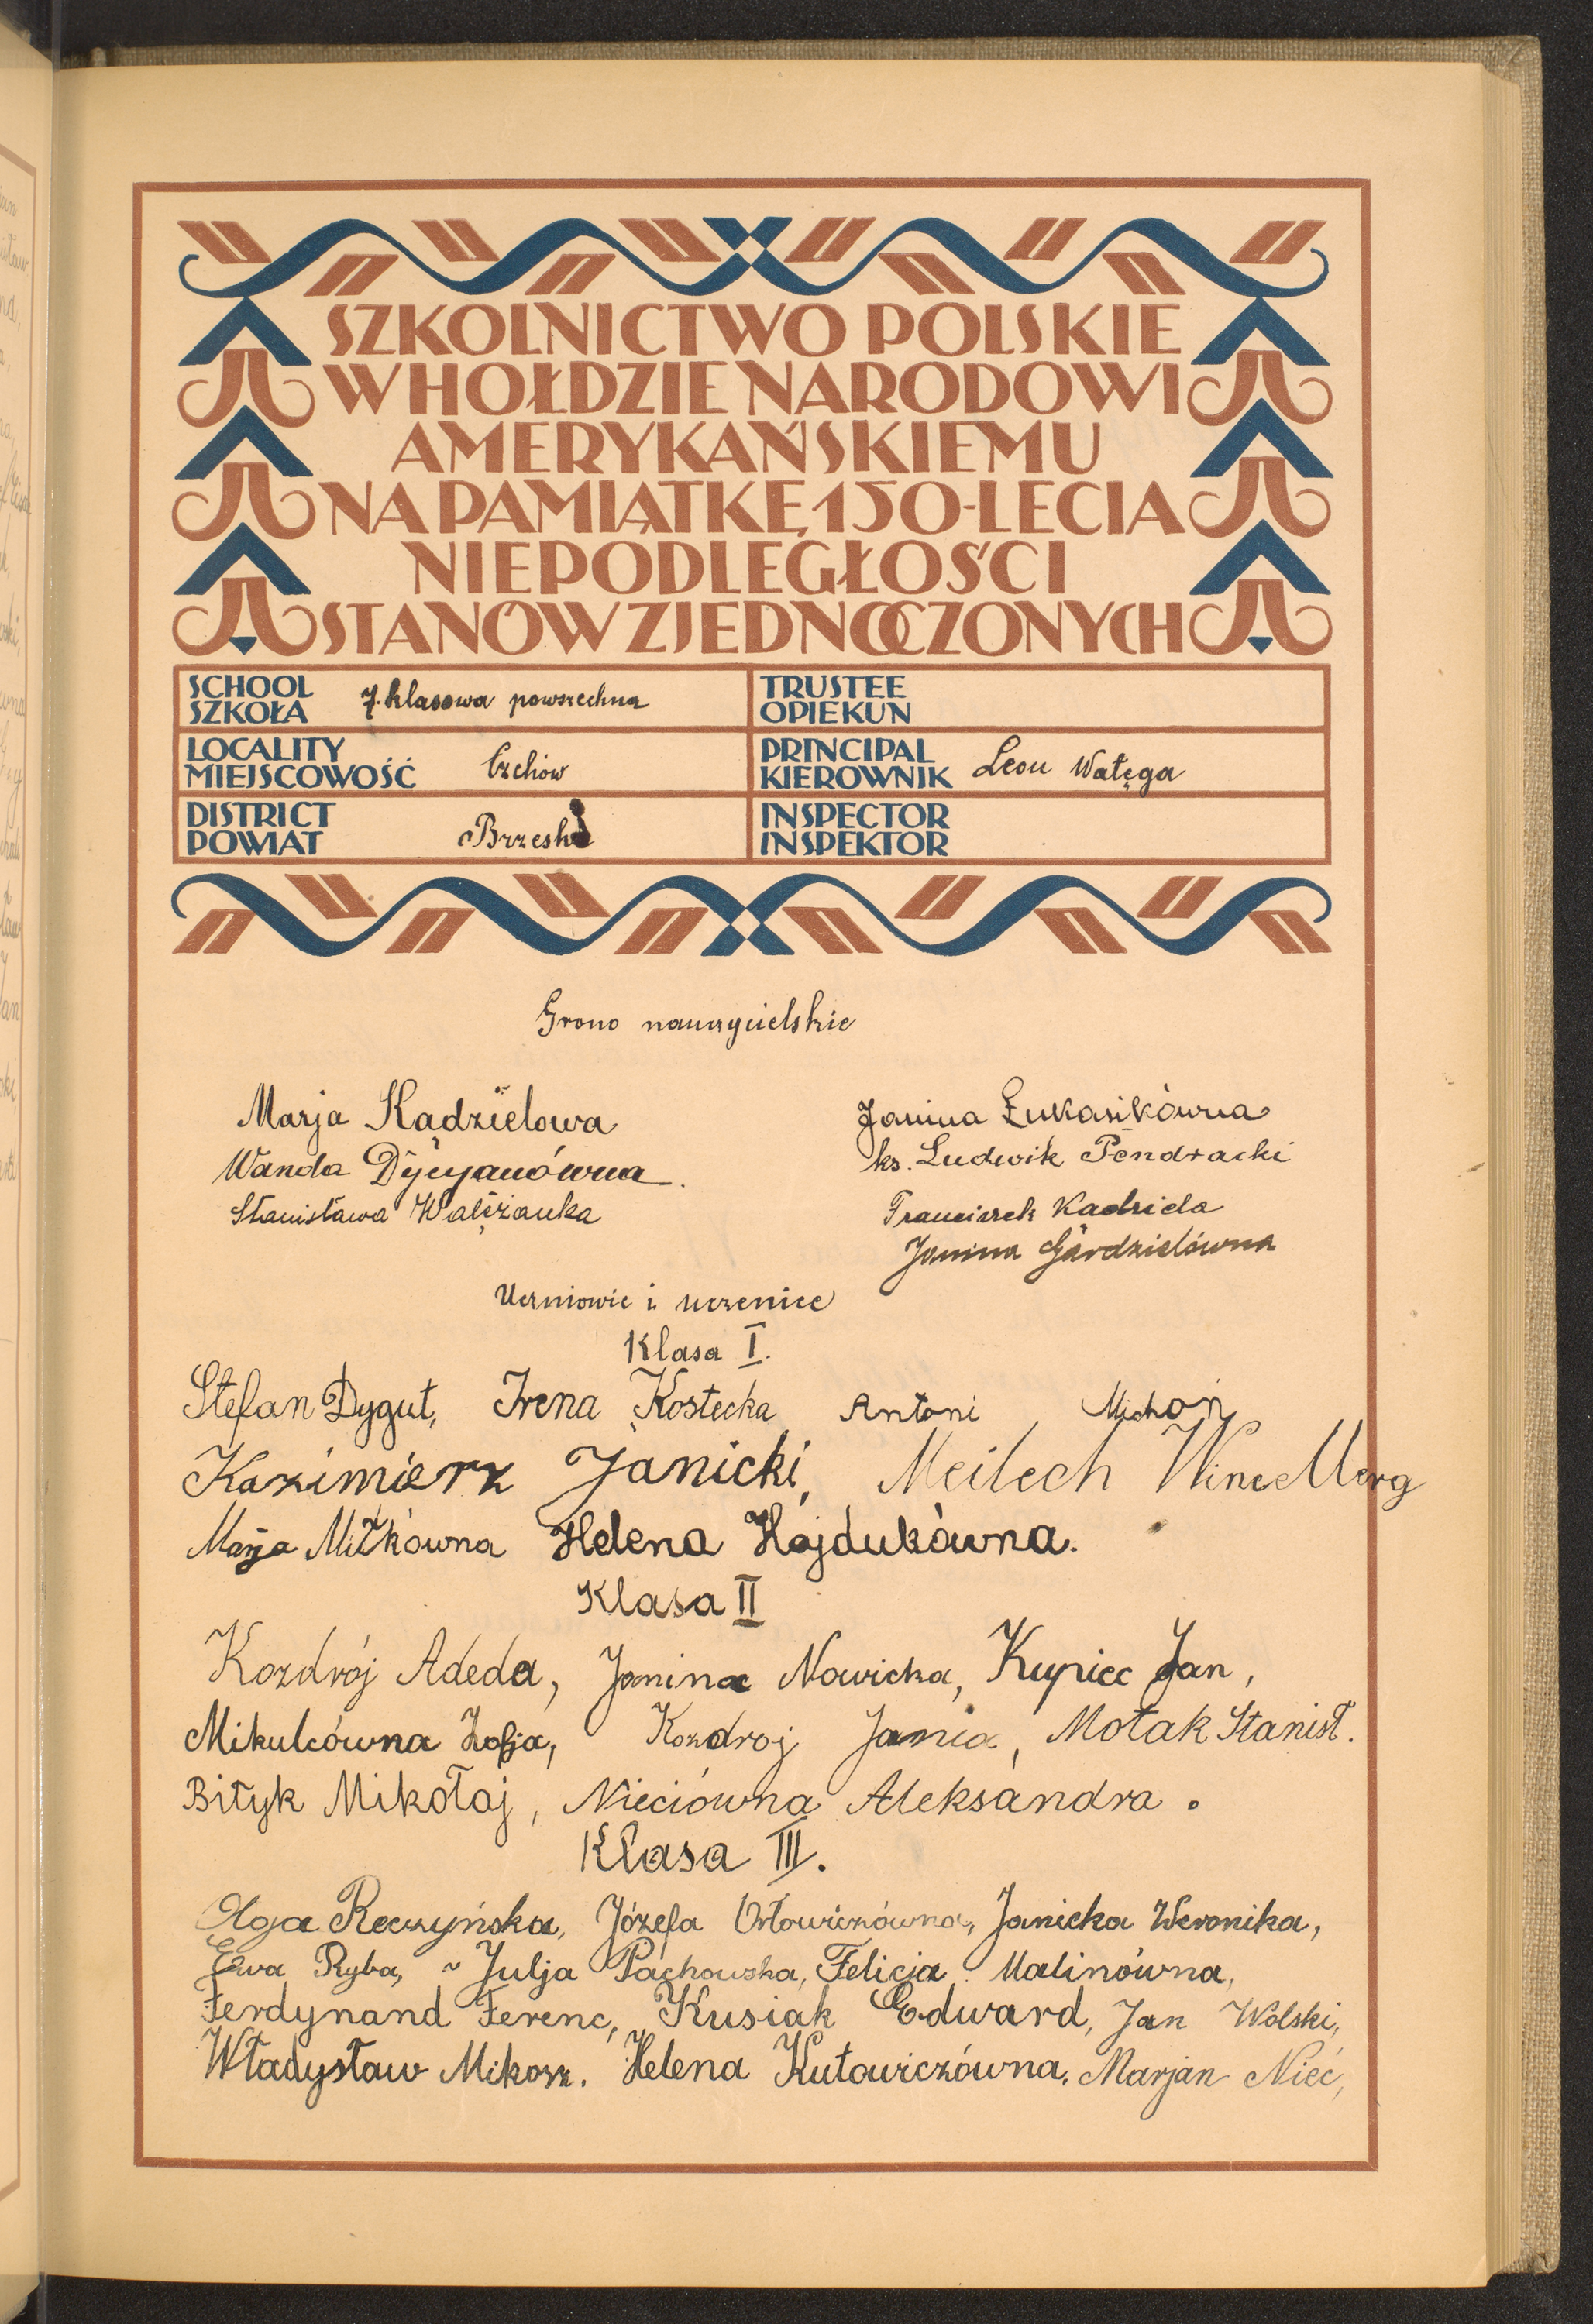 SZKOLNICTWO POLSKIE
W HOŁDZIE NARODOWI
AMERYKAŃSKIEMU
NA PAMIĄTKĘ 150-LECIA
NIEPODLEGŁOŚCI
STANÓW ZJEDNOCZONYCH
SCHOOL
SZKOŁA
7. klasowa powszechna
TRUSTEE
OPIEKUN
LOCALITY
MIEJSCOWOŚĆ
Czchów
PRINCIPAL
KIEROWNIK
Leon Wałęga
DISTRICT
POWIAT
Brzesko
INSPECTOR
INSPEKTOR
Grono nauczycielskie
Marja Kadzielowa
Janina Łukasikówna
Wanda Dycyanówna
ks. Ludwik Pendracki
Stanisława
Franciszek Kadziela
Janina Gardzielówna
Uczniowie i uczenice
Klasa I.
Stefan Dygut, Irena Kostecka Antoni Michoń
Kazimierz Janicki, Meilech
Marja Miłkówna Helena Hajdukówna.
Klasa II
Kozdrój Adeda, Janina Nowicka, Kupiec Jan,
Mikulcówna Zofja, Kozdroj Jania, Motak Stanisł.
Bityk Mikołaj, Nieciówna Aleksandra.
Klasa III.
Olga Reczyńska, Józefa Orłowiczówna, Janicka Weronika,
Ewa Ryba, Julja Pachowska, Felicja Malinówna,
Ferdynand Ferenc, Kusiak Edward, Jan Wolski,
Władysław Mikosz. Helena Kutowiczówna, Marjan Nieć,